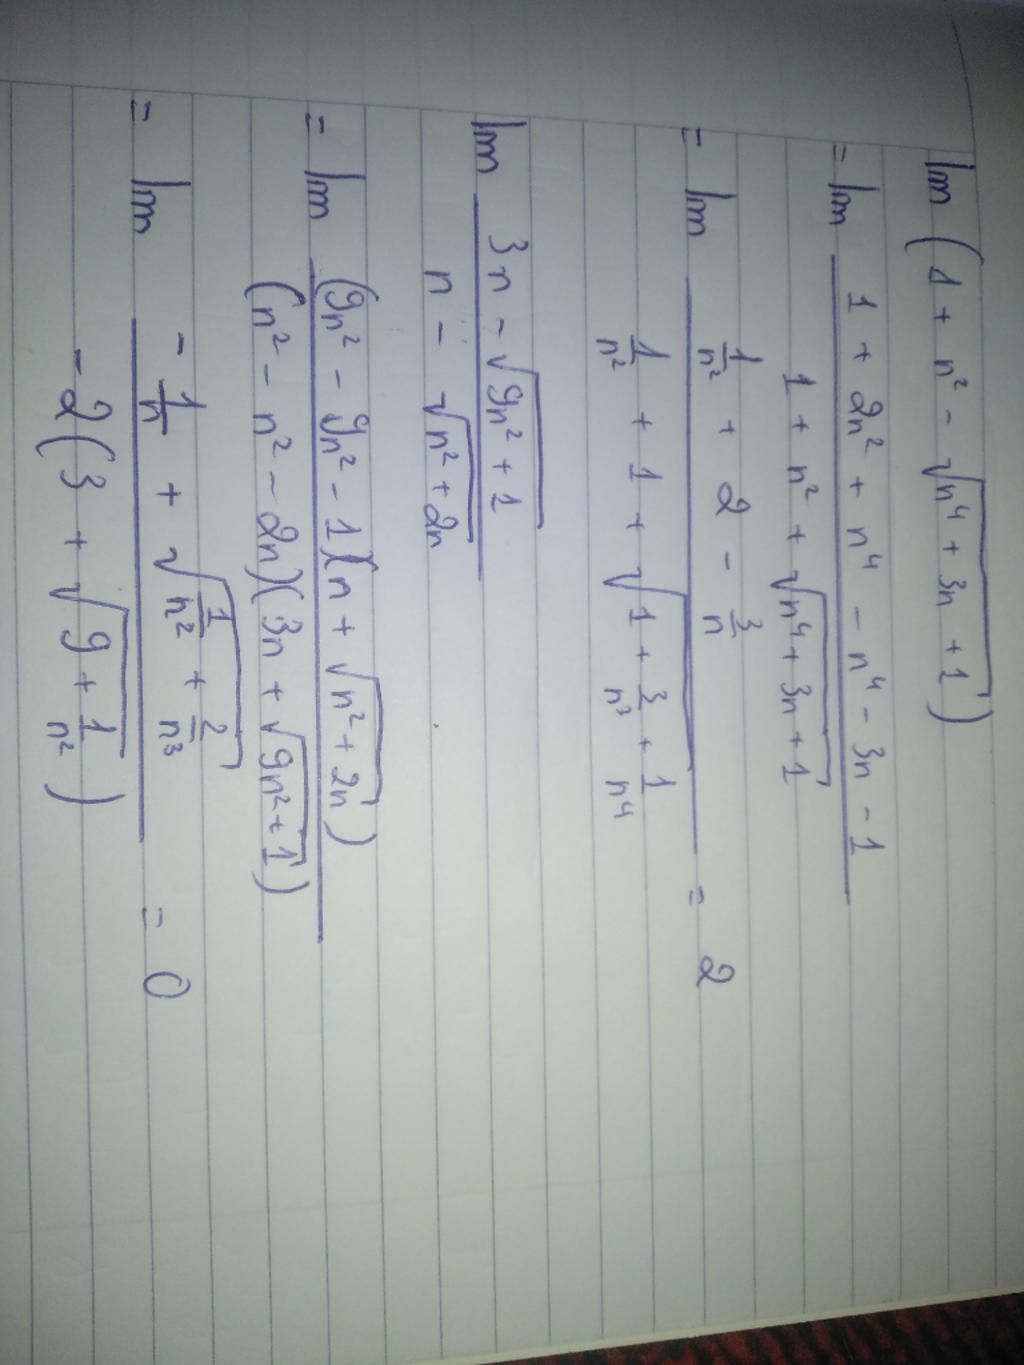 lim (1 + n² - √(n⁴ + 3n + 1))
= lim (1 + 2n² + n⁴ - n⁴ - 3n - 1) / (1 + n² + √(n⁴ + 3n + 1))
= lim (1/n² + 2 - 3/n) / (1/n² + 1 + √(1 + 3/n³ + 1/n⁴)) = 2
lim (3n - √(9n² + 1)) / (n - √(n² + 2n))
= lim (9n² - 9n² - 1)(n + √(n² + 2n)) / (n² - n² - 2n)(3n + √(9n² + 1))
= lim (-1/n + √(1/n² + 2/n³)) / -2(3 + √(9 + 1/n²)) = 0